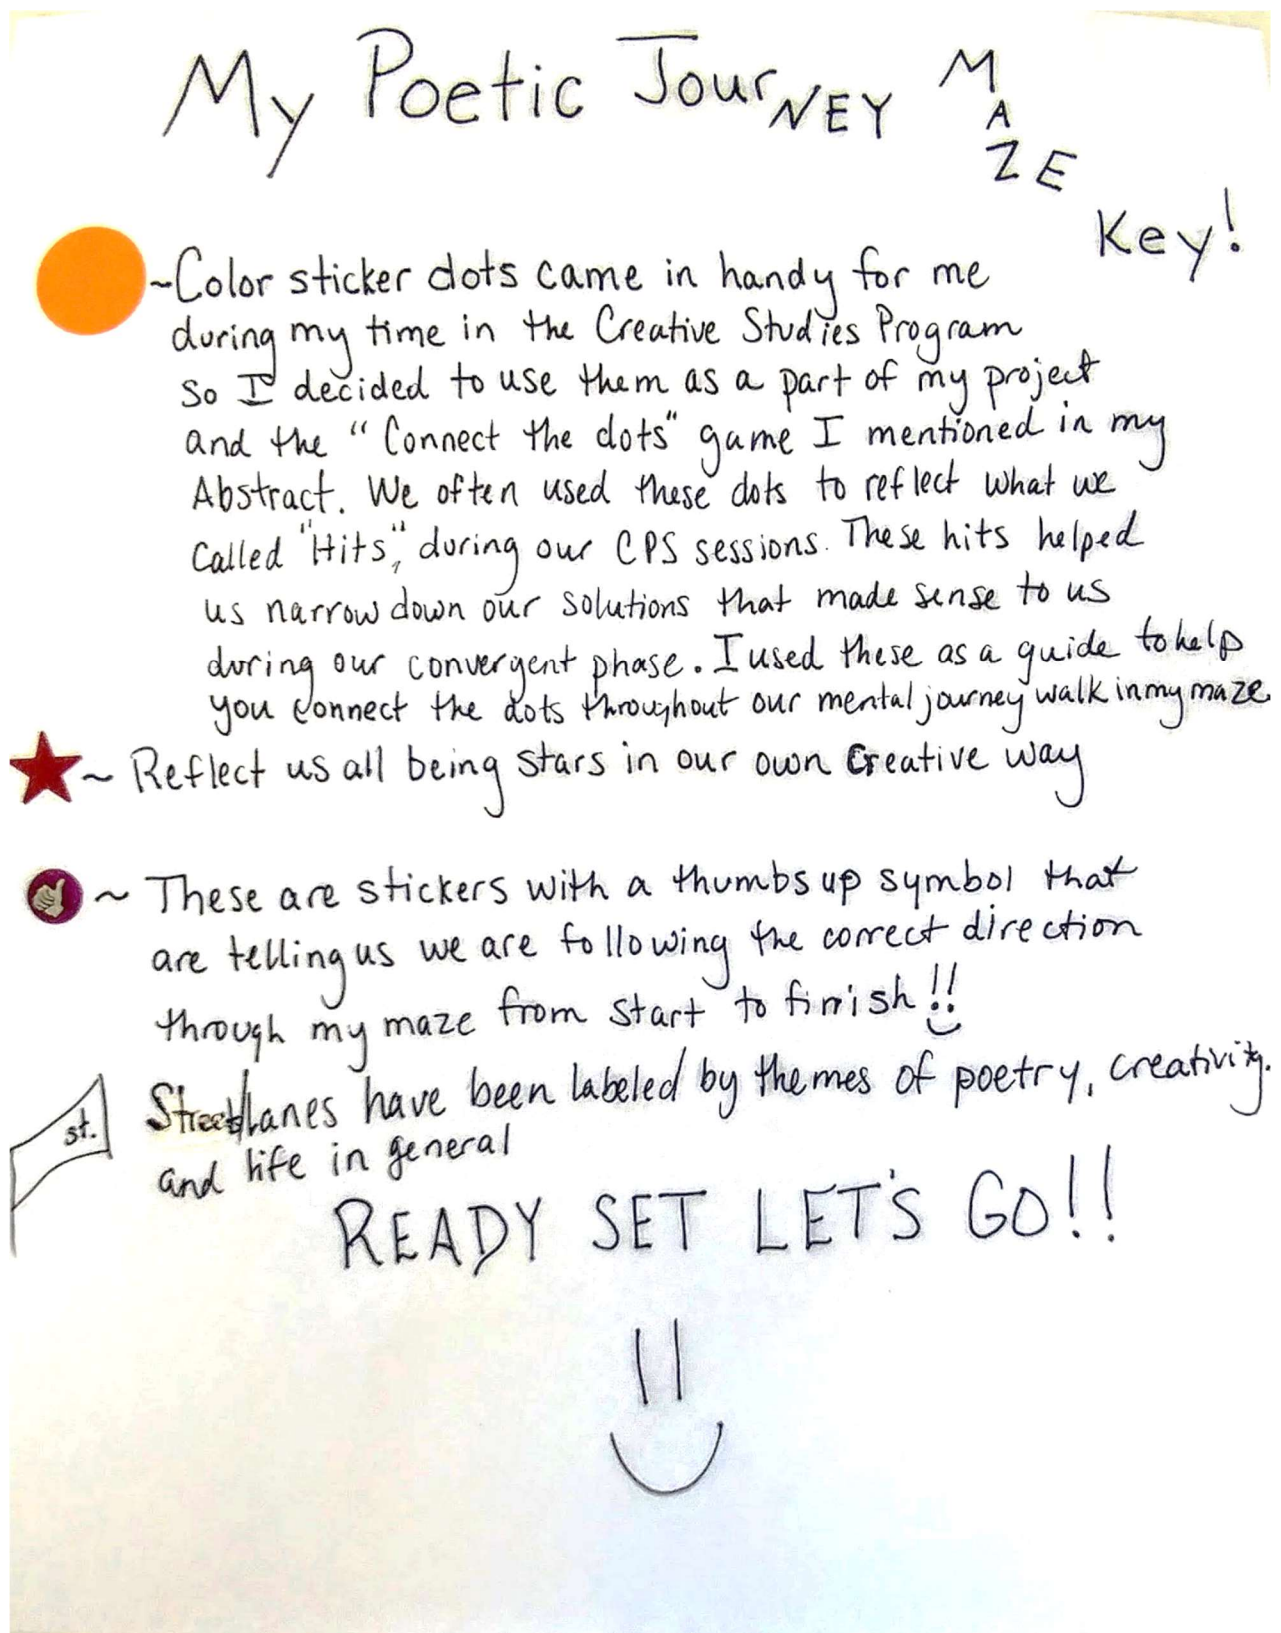 My Poetic JourNEY MAZE
Key!
~Color sticker dots came in handy for me
during my time in the Creative Studies Program
so I decided to use them as a part of my project
and the "Connect the dots" game I mentioned in my
Abstract. We often used these dots to reflect what we
called "Hits," during our CPS sessions. These hits helped
us narrow down our solutions that made sense to us
during our convergent phase. I used these as a guide to help
you connect the dots throughout our mental journey walk in my maze.
~ Reflect us all being stars in our own Creative way
~ These are stickers with a thumbs up symbol that
are telling us we are following the correct direction
through my maze from start to finish!!
st.
Streets/lanes have been labeled by themes of poetry, creativity.
and life in general
READY SET LET'S GO!!